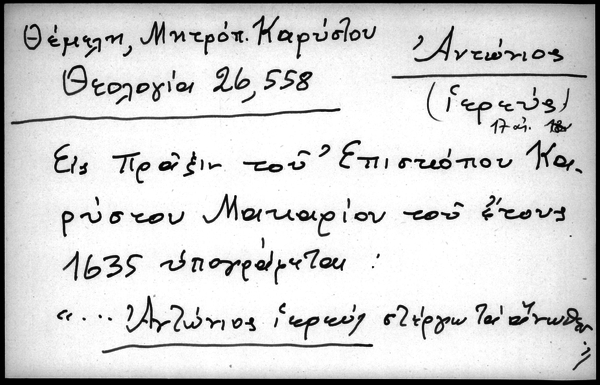 Θέμελη, Μητρόπ. Καρύστου
Θεολογία 26,558
Ἀντώνιος
(ἱερεύς)
17 αἰ.
Εἰς Πρᾶξιν τοῦ Ἐπισκόπου Κα-
ρύστου Μακαρίου τοῦ ἔτους
1635 ὑπογράφεται :
«... Ἀντώνιος ἱερεύς στέργω τά ἄνωθεν
»